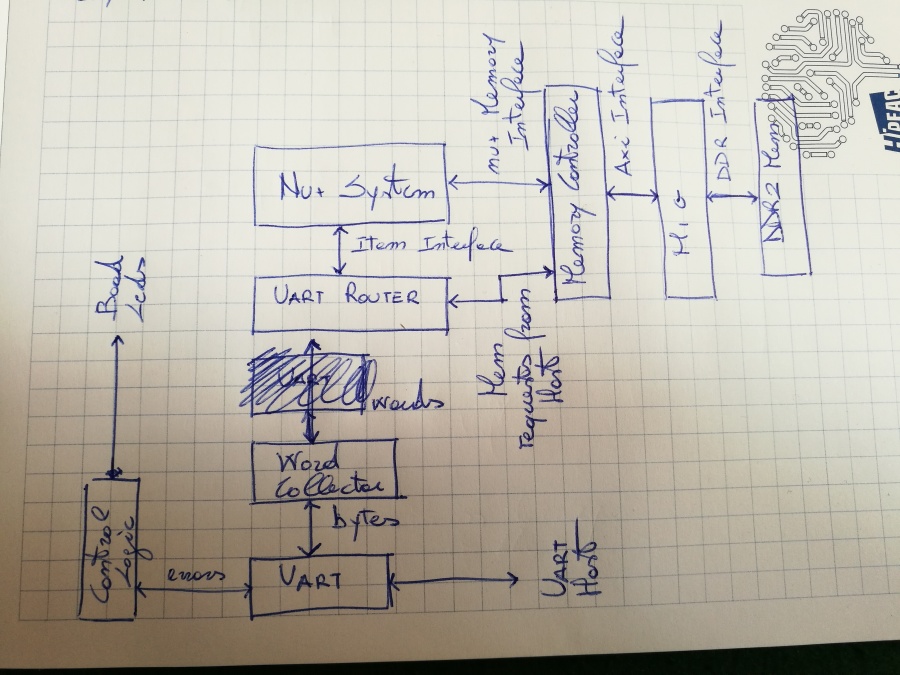 Nu+ System
Item Interface
UART ROUTER
words
Word
Collector
bytes
UART
errors
Control
Logic
Board
Leds
UART
Host
Mem
requests from
Host
nu+ Memory
Interface
Memory Controller
Axi Interface
MIG
DDR Interface
DDR2 Mem
HiPEAC